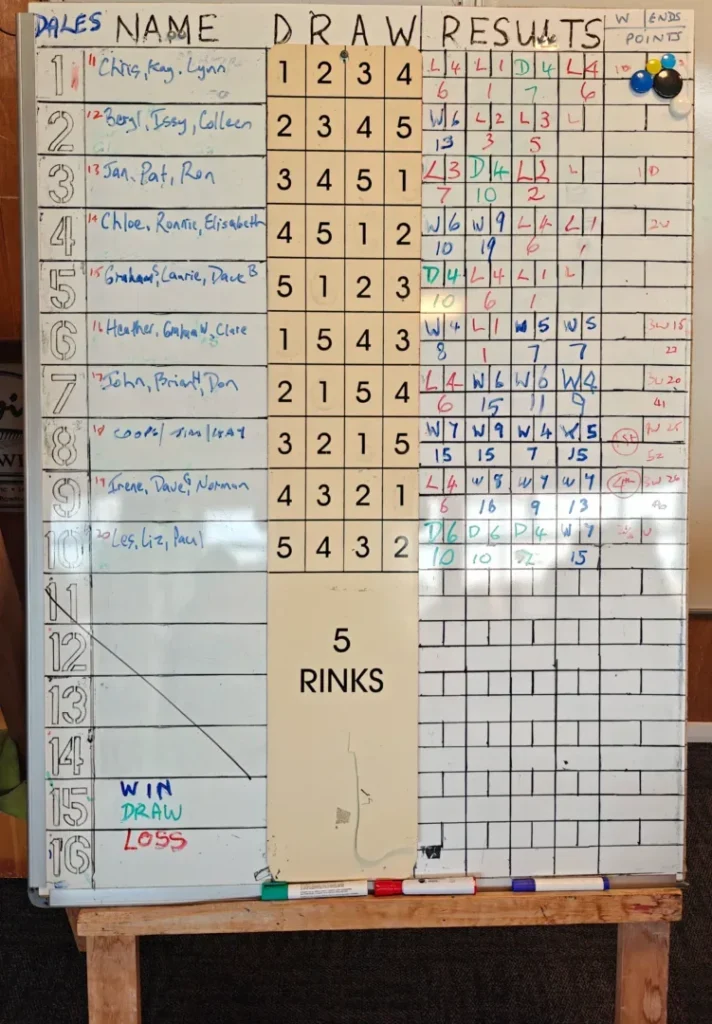 DALES NAME DRAW RESULTS W ENDS
POINTS
1 11 Chris, Kay, Lynn 1 2 3 4 L 4 L 1 D 4 L 4
6 1 7 6
2 12 Beryl, Issy, Colleen 2 3 4 5 W 6 L 2 L 3 L
13 3 5
3 13 Jan, Pat, Ron 3 4 5 1 L 3 D 4 L 2 L
7 10 2
4 14 Chloe, Ronnie, Elisabeth 4 5 1 2 W 6 W 9 L 4 L 1
10 19 6 1
5 15 Graham S, Laurie, Dave B 5 1 2 3 D 4 L 4 L 1 L
10 6 1
6 16 Heather, Graham W, Clare 1 5 4 3 W 4 L 1 W 5 W 5
8 1 7 7
7 17 John, Brian H, Don 2 1 5 4 L 4 W 6 W 6 W 4
6 15 11 9 41
8 18 COOPS / JIM / KAY 3 2 1 5 W 7 W 9 W 4 W 5 1ST
15 15 7 15 52
9 19 Irene, Dave G, Norman 4 3 2 1 L 4 W 8 W 7 W 7 3W 26
6 16 9 13
10 20 Les, Liz, Paul 5 4 3 2 D 6 D 6 D 4 W 7
10 10 15
11
12 5
RINKS
13
14
15 WIN
DRAW
16 LOSS